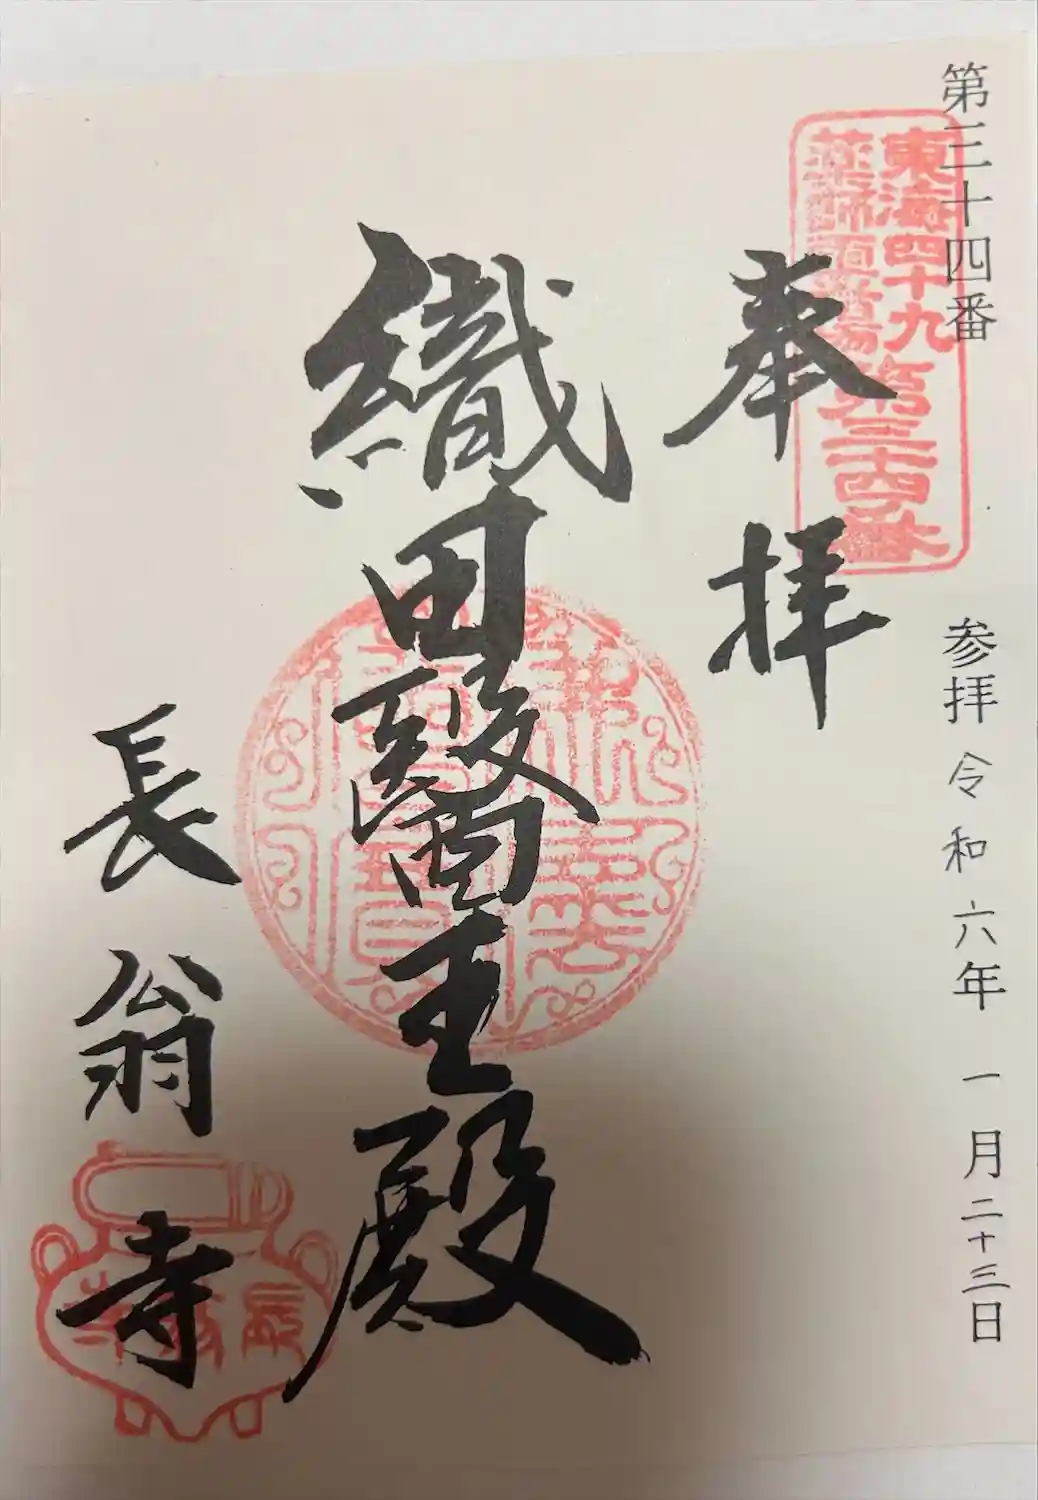 第三十四番
参拝 令和六年 一月二十三日
東海四十九
薬師霊場
第三十四番
奉拝
織田醫王殿
長翁寺
長翁寺